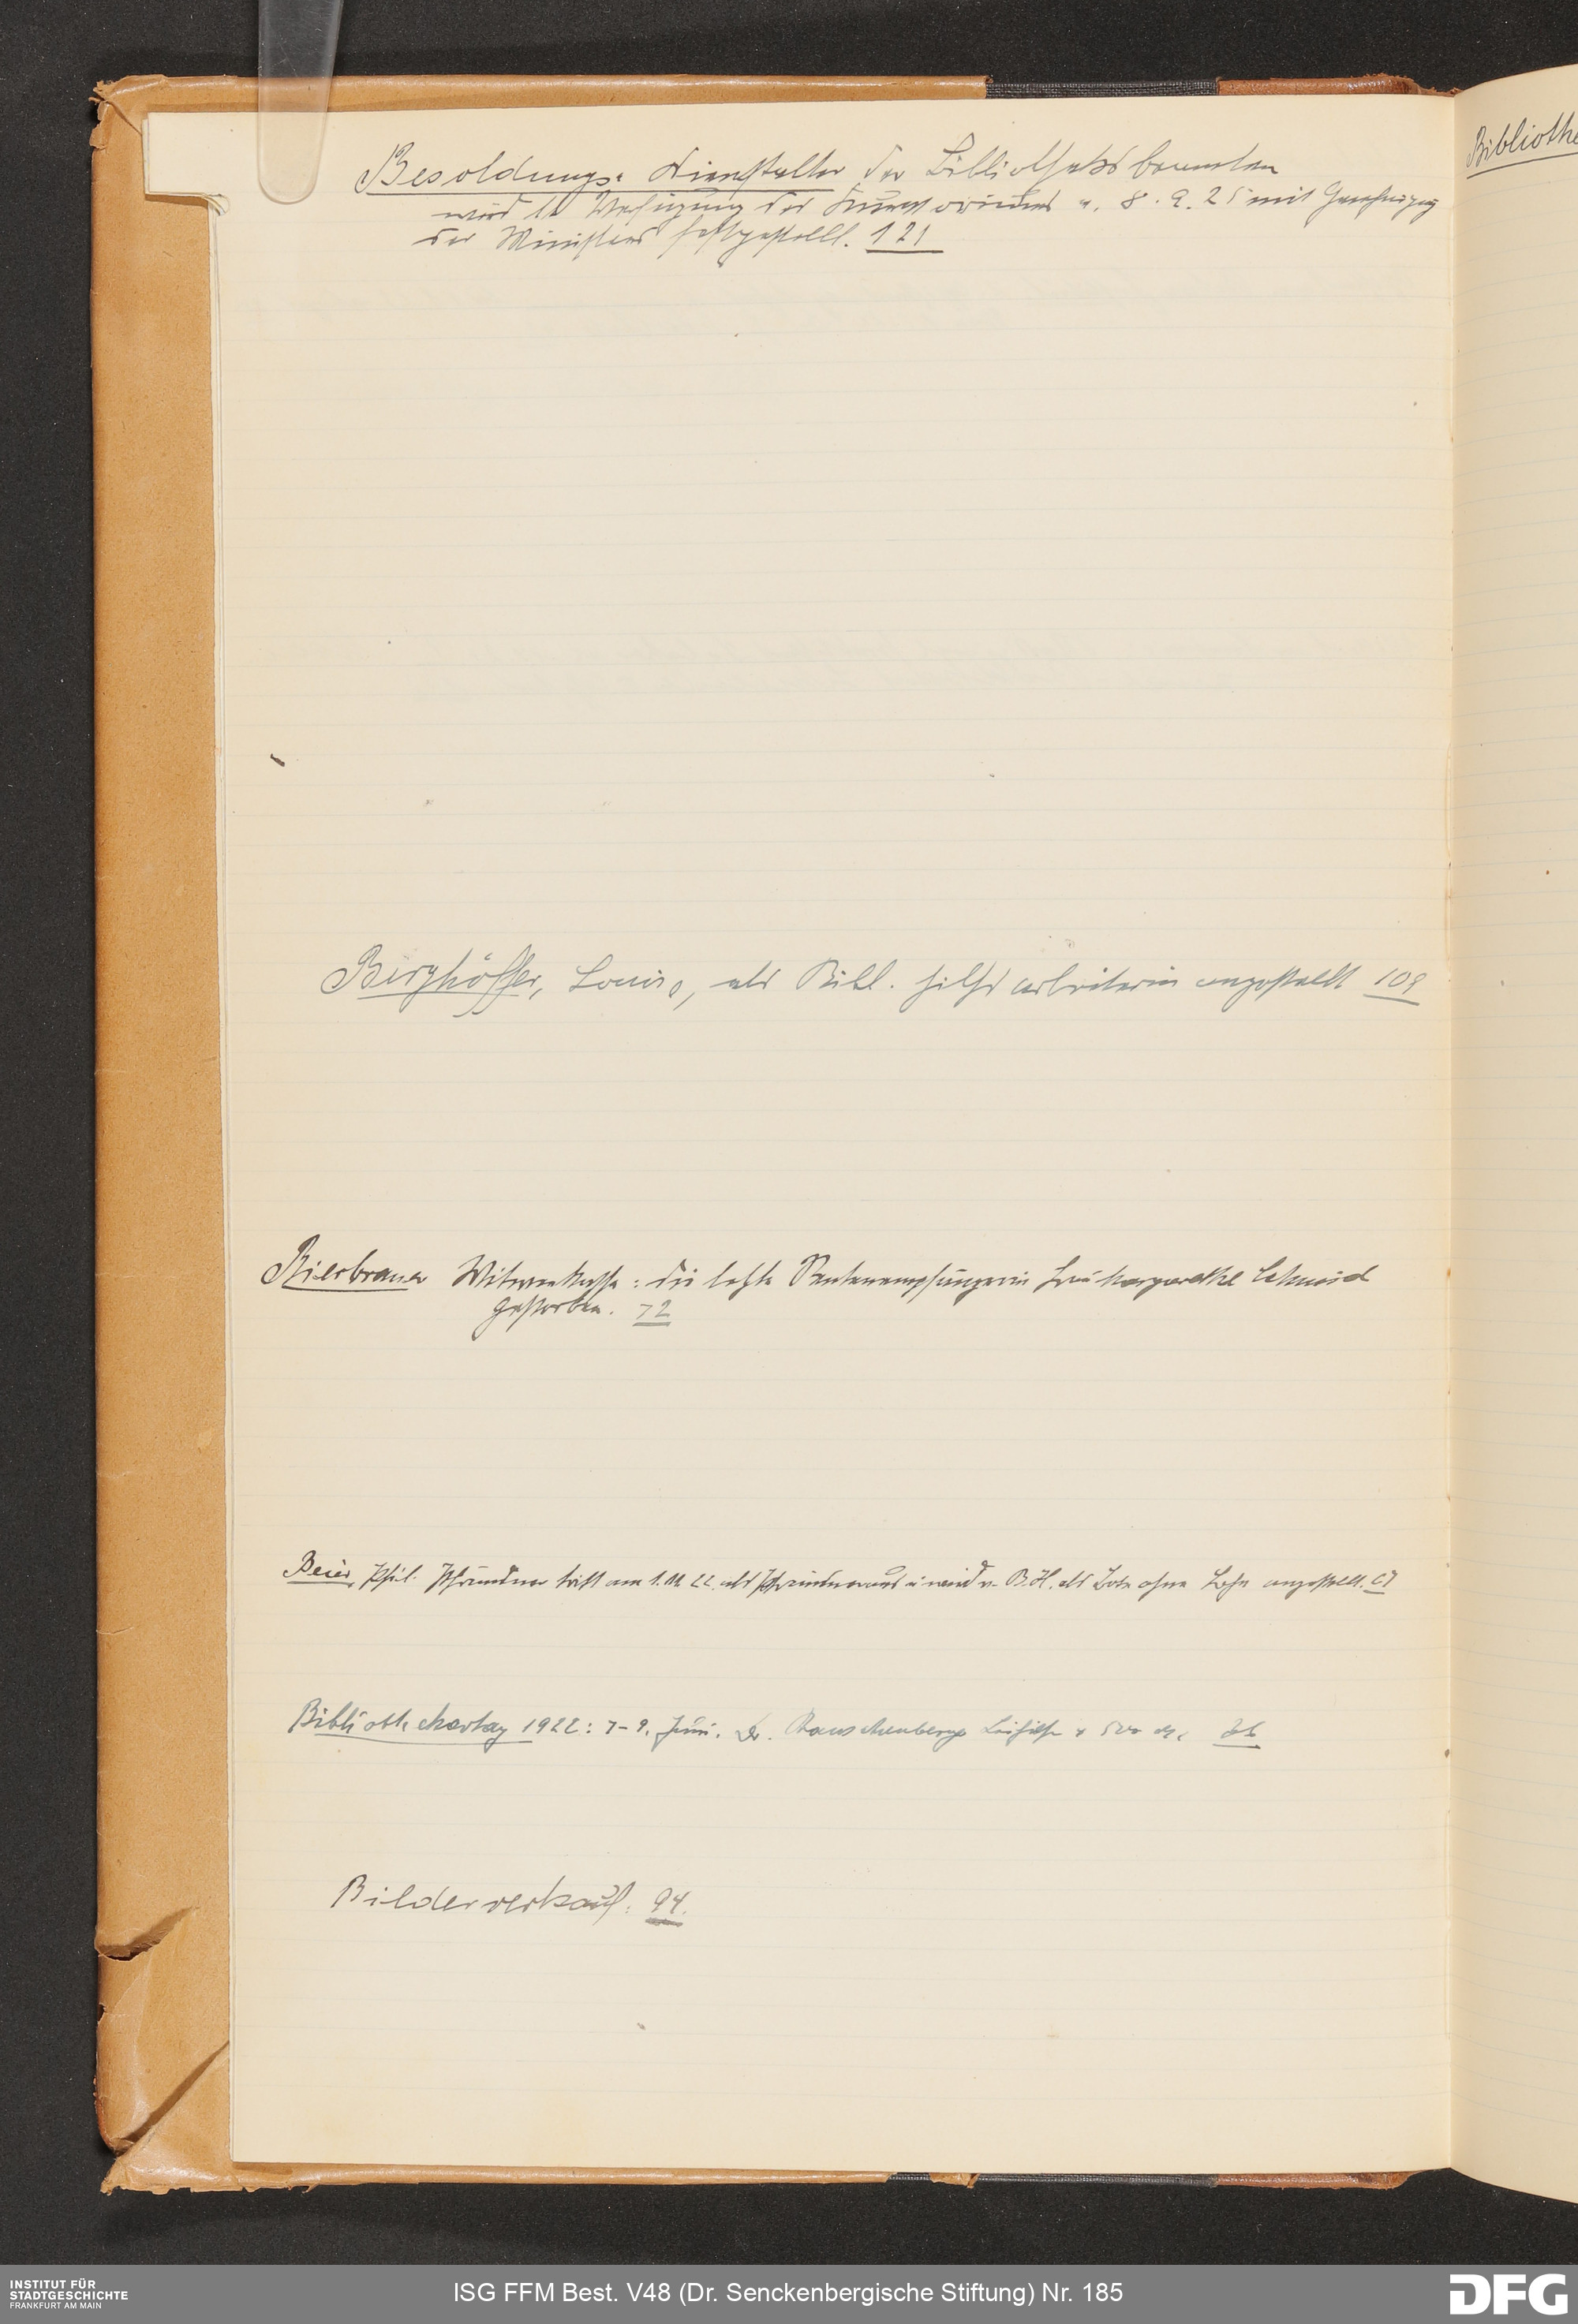 Besoldungs-Dienstalter der Bibliotheksbeamten
wird lt Verfügung des Kuratoriums v. 8.9.25 mit Genehmigung
des Ministers festgestellt. 121
Berghöffer, Louise, als Bibl. hilfsarbeiterin angestellt 109
Bierbrauer Witwenkasse: die letzte Rentenempfängerin Frau Margarethe Schmid
gestorben. 72
Beier, Phil. Pfründner tritt am 1.11.22 als Pfründner aus u. wird v. B.H. als Bote ohne Lohn angestellt. 67
Bibliothekartag 1922: 7-9. Juni. Dr. Rauschenberger Beihilfe v 500 M.
Bilderverkauf: 94.
Bibliothe
INSTITUT FÜR
STADTGESCHICHTE
FRANKFURT AM MAIN
ISG FFM Best. V48 (Dr. Senckenbergische Stiftung) Nr. 185
DFG